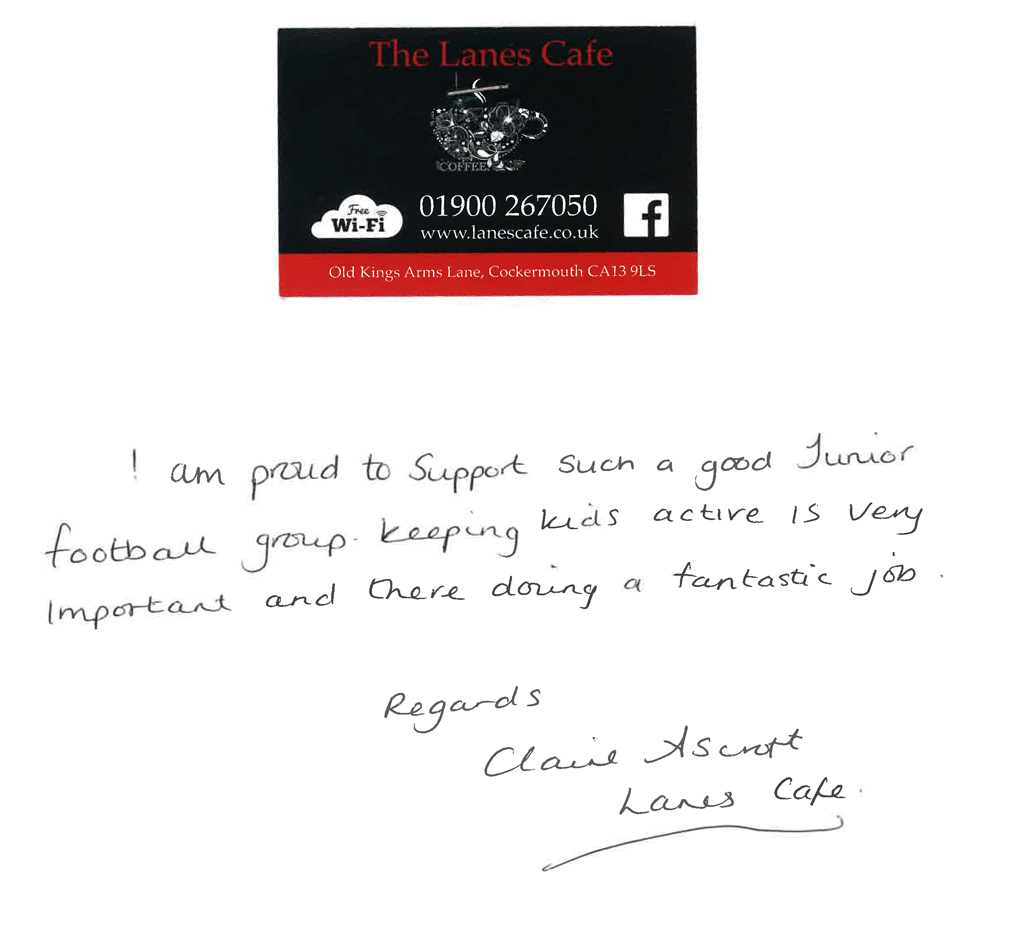 The Lanes Cafe
COFFEE
Free
Wi-Fi
01900 267050
www.lanescafe.co.uk
f
Old Kings Arms Lane, Cockermouth CA13 9LS
I am proud to Support such a good Junior
football group. keeping kids active is very
Important and there doing a fantastic job.
Regards
Claire Ascroft
Lanes Cafe.